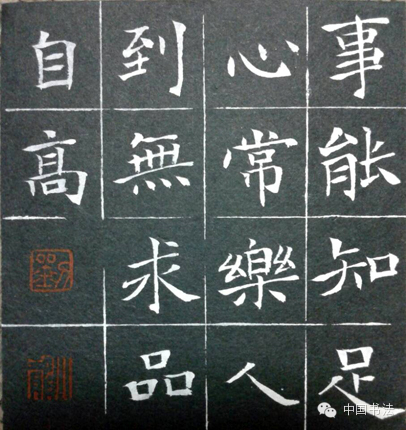 事能知足
心常樂人
到無求品
自高
中国书法